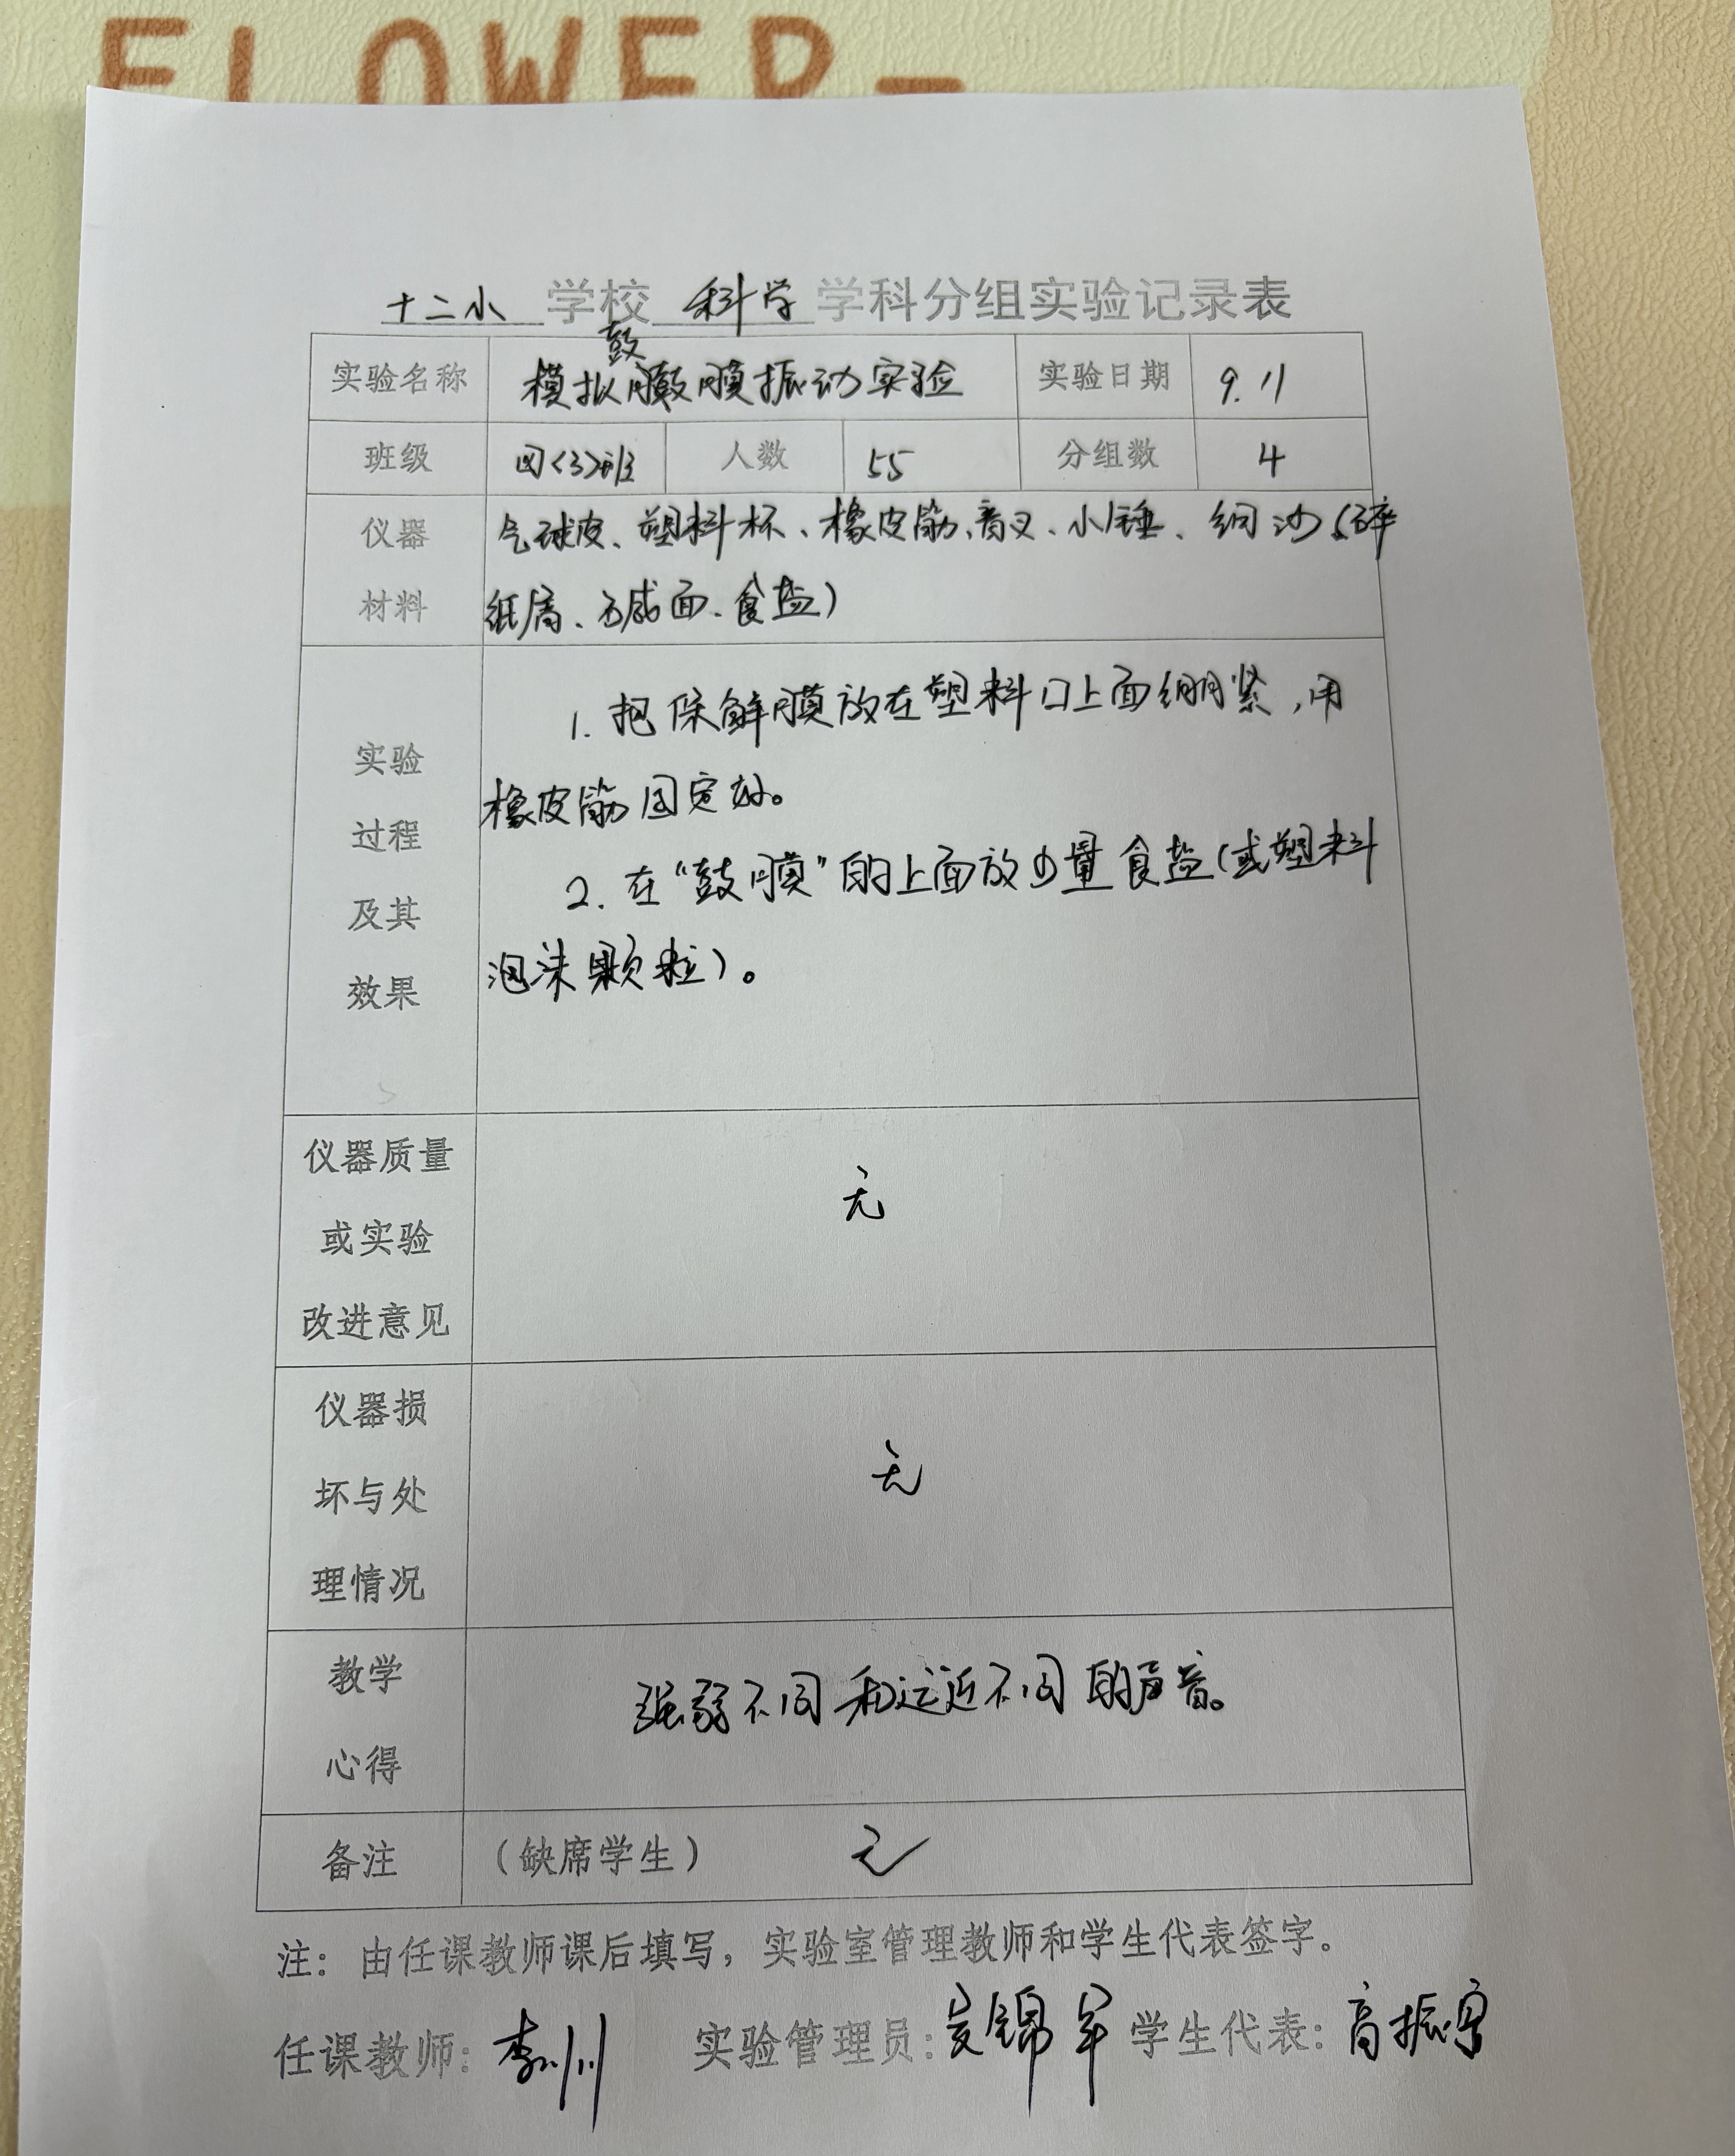 FLOWER-
十二小 学校 科学 学科分组实验记录表
实验名称 模拟鼓膜振动实验 实验日期 9.11
班级 四<3>班 人数 55 分组数 4
仪器 气球皮、塑料杯、橡皮筋、音叉、小锤、细沙(碎
材料 纸屑、碱面、食盐)
1. 把保鲜膜放在塑料口上面绷紧,用
实验
橡皮筋固定好。
过程
2. 在“鼓膜”的上面放少量食盐(或塑料
及其
泡沫颗粒)。
效果
仪器质量
无
或实验
改进意见
仪器损
无
坏与处
理情况
教学
强弱不同和远近不同的声音。
心得
备注 (缺席学生) 无
注：由任课教师课后填写，实验室管理教师和学生代表签字。
任课教师: 李川 实验管理员: 锦军 学生代表: 高振宇